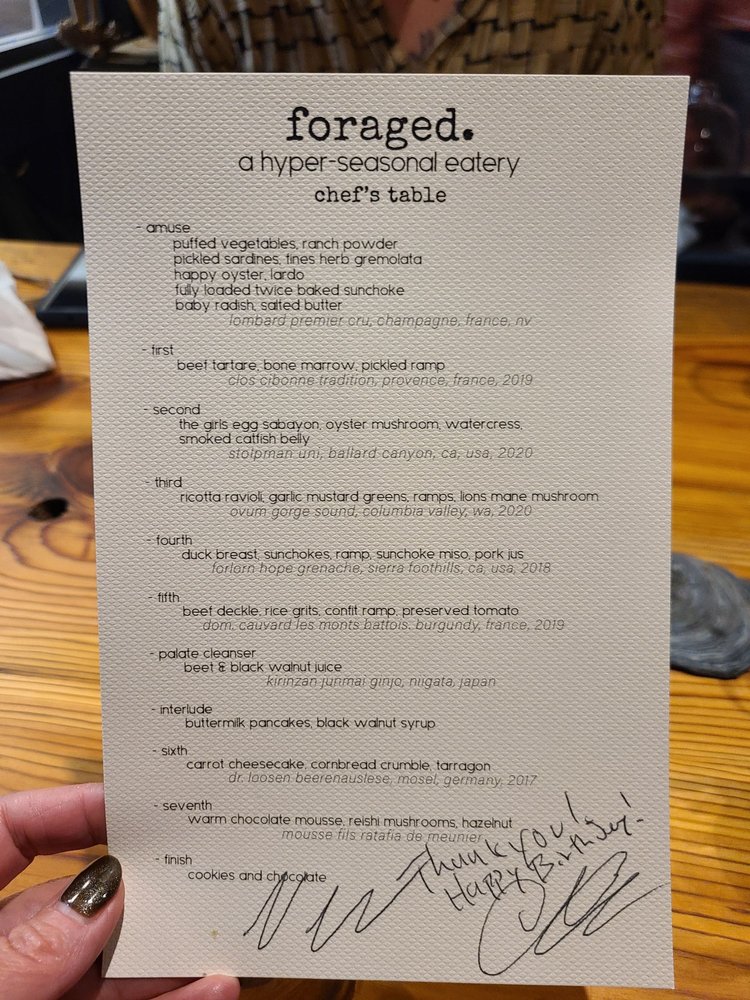 foraged.
a hyper-seasonal eatery
chef's table
- amuse
puffed vegetables, ranch powder
pickled sardines, fines herb gremolata
happy oyster, lardo
fully loaded twice baked sunchoke
baby radish, salted butter
lombard premier cru, champagne, france, nv
- first
beef tartare, bone marrow, pickled ramp
clos cibonne tradition, provence, france, 2019
- second
the girls egg sabayon, oyster mushroom, watercress,
smoked catfish belly
stolpman uni, ballard canyon, ca, usa, 2020
- third
ricotta ravioli, garlic mustard greens, ramps, lions mane mushroom
ovum gorge sound, columbia valley, wa, 2020
- fourth
duck breast, sunchokes, ramp, sunchoke miso, pork jus
forlorn hope grenache, sierra foothills, ca, usa, 2018
- fifth
beef deckle, rice grits, confit ramp, preserved tomato
dom. cauvard les monts battois. burgundy, france, 2019
- palate cleanser
beet & black walnut juice
kirinzan junmai ginjo, niigata, japan
- interlude
buttermilk pancakes, black walnut syrup
- sixth
carrot cheesecake, cornbread crumble, tarragon
dr. loosen beerenauslese, mosel, germany, 2017
- seventh
warm chocolate mousse, reishi mushrooms, hazelnut
mousse fils ratafia de meunier
- finish
cookies and chocolate
Thank you!
Happy Birthday!